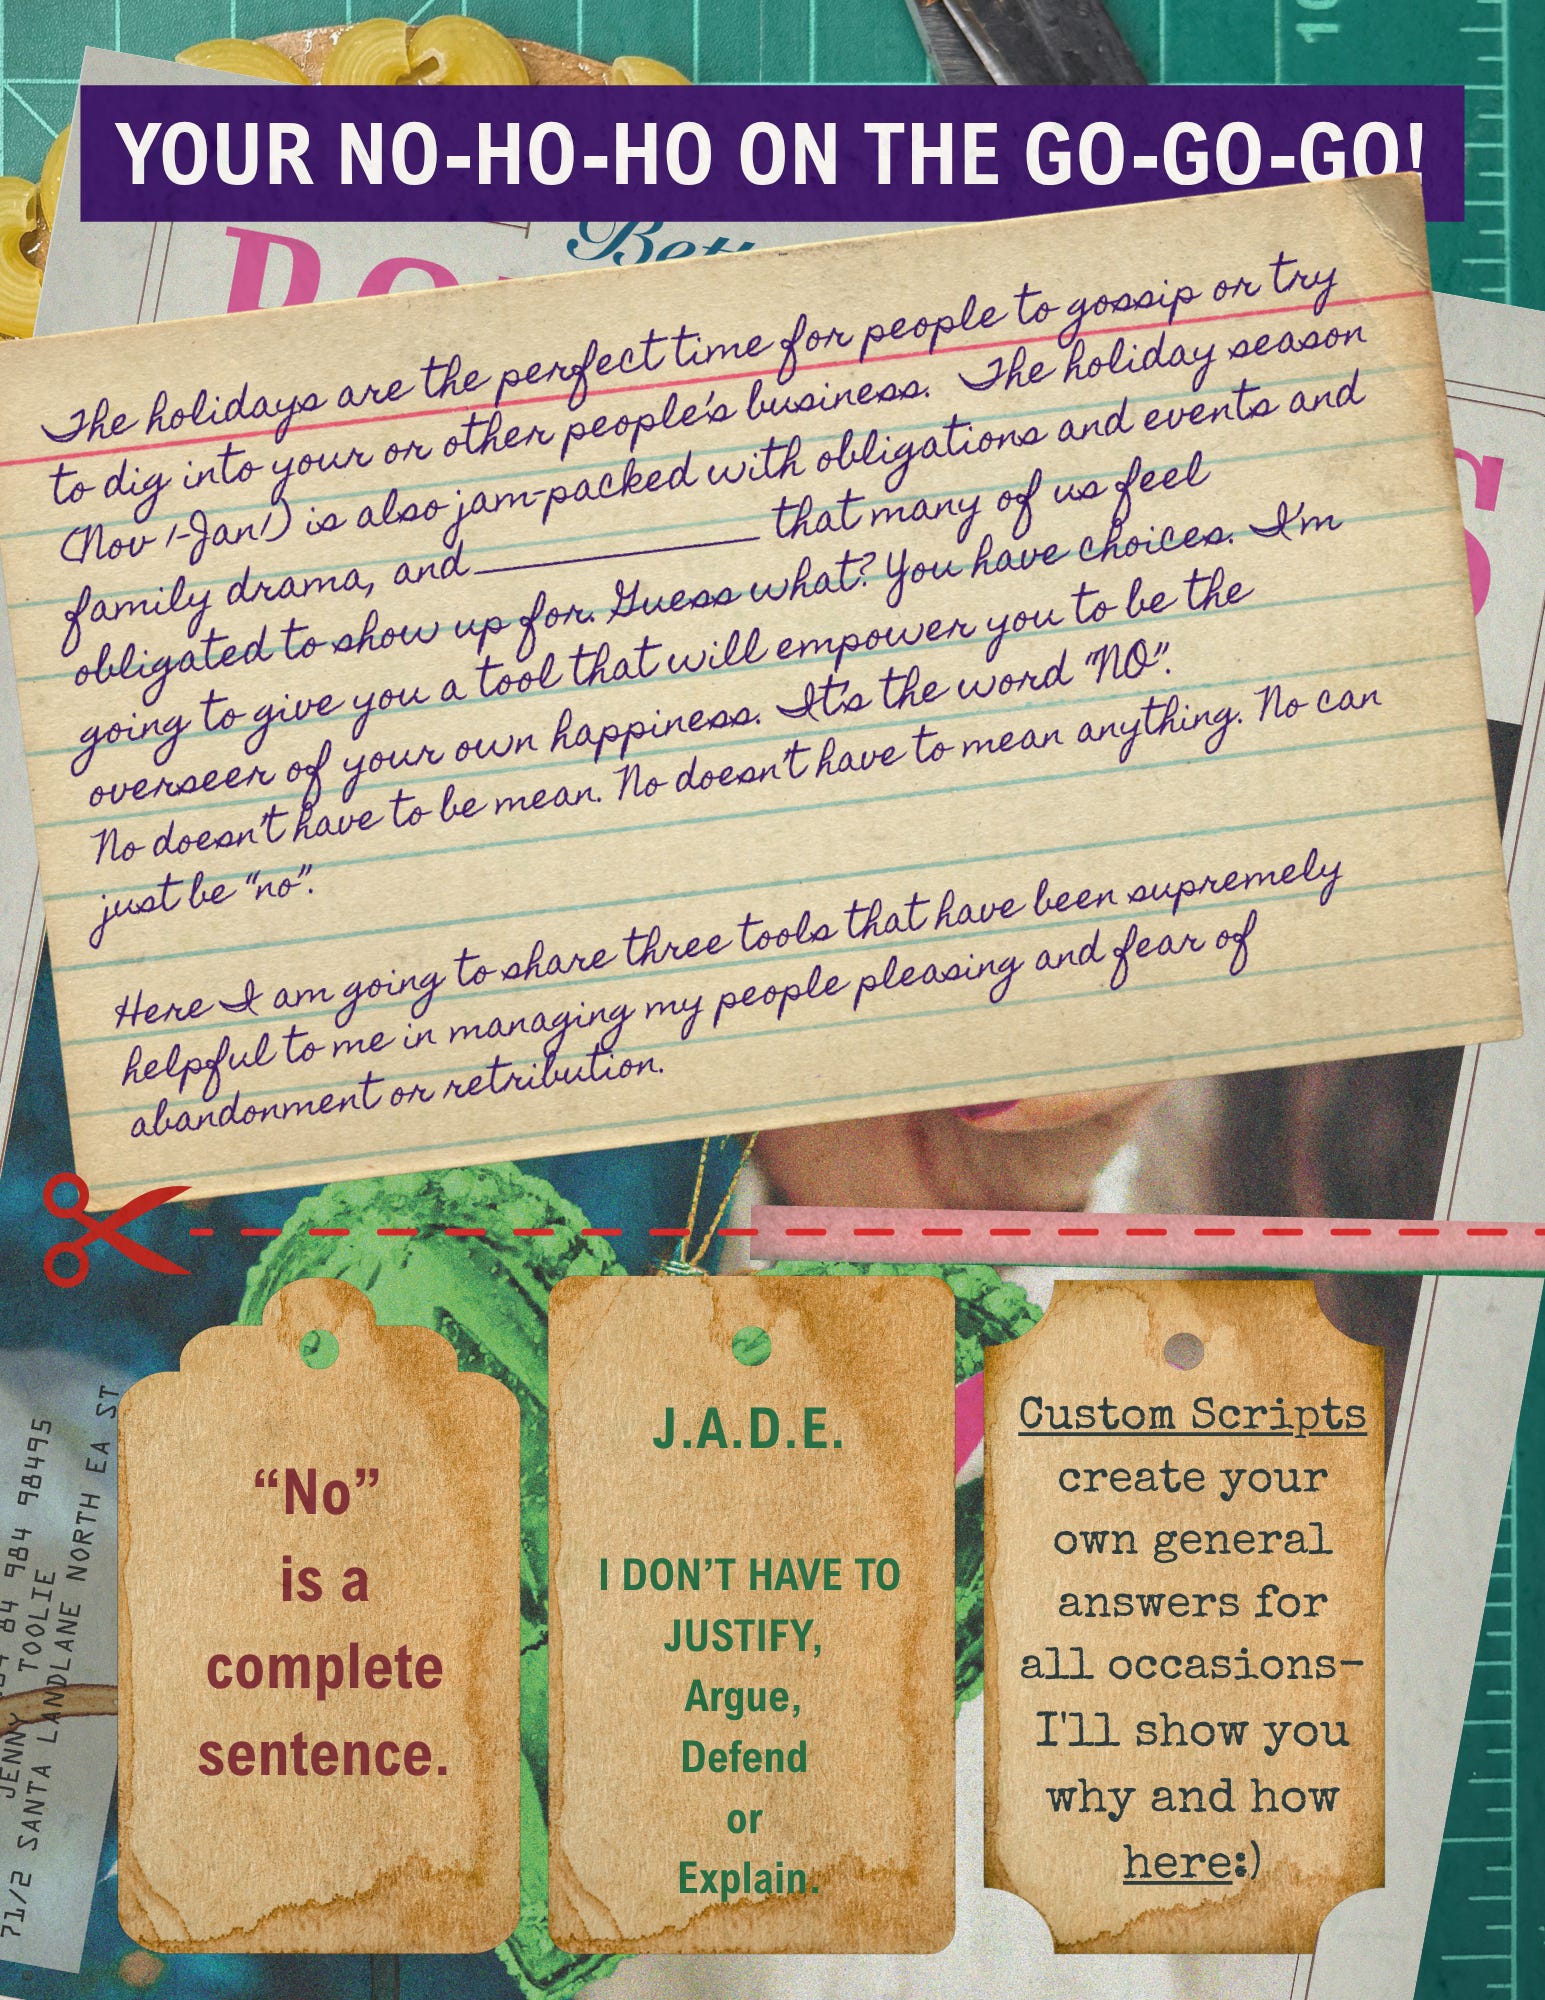 10
YOUR NO-HO-HO ON THE GO-GO-GO!
The holidays are the perfect time for people to gossip or try
to dig into your or other people's business. The holiday season
(Nov 1-Jan1) is also jam-packed with obligations and events and
family drama, and____________ that many of us feel
obligated to show up for. Guess what? You have choices. I'm
going to give you a tool that will empower you to be the
overseer of your own happiness. It's the word "NO".
No doesn't have to be mean. No doesn't have to mean anything. No can
just be "no".
Here I am going to share three tools that have been supremely
helpful to me in managing my people pleasing and fear of
abandonment or retribution.
“No”
is a
complete
sentence.
J.A.D.E.
I DON’T HAVE TO
JUSTIFY,
Argue,
Defend
or
Explain.
Custom Scripts
create your
own general
answers for
all occasions-
I'll show you
why and how
here:)
84 984 98495
JENNY TOOLIE
71/2 SANTA LANDLANE NORTH EA ST